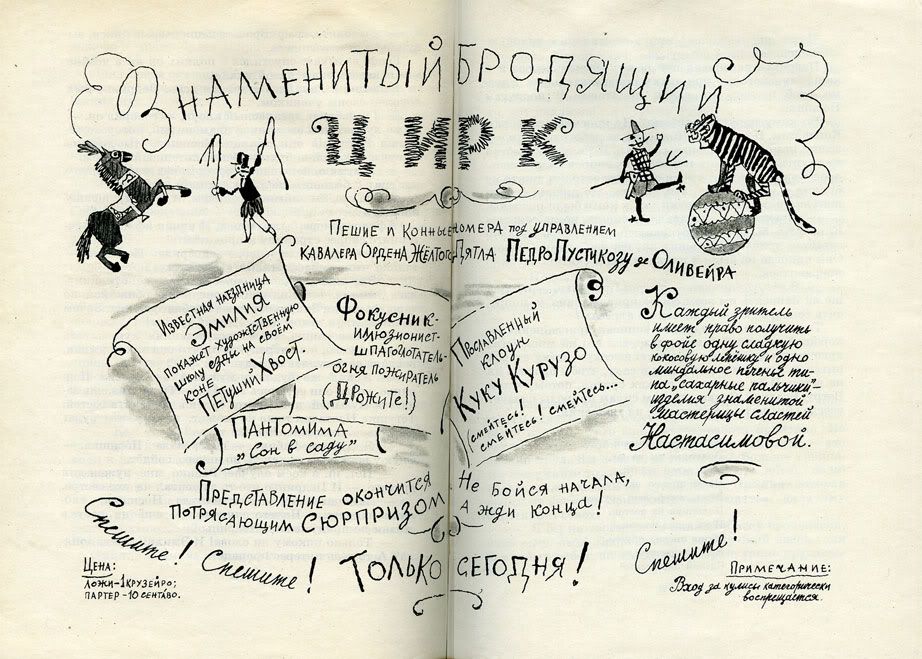 Знаменитый бродящий
ЦИРК
Пешие и конные номера под управлением
кавалера Ордена Жёлтого Дятла Педро Пустикозу де Оливейра
Известная наездница
Эмилия
покажет художественную
школу езды на своём
коне
Петуший Хвост.
Фокусник-
иллюзионист-
шпагоглотатель-
огня пожиратель
(Дрожите!)
Пантомима
„Сон в саду"
Прославленный
клоун
Куку Курузо
(смейтесь!
смейтесь! смейтесь...
Каждый зритель
имеет право получить
в фойе одну сладкую
кокосовую лепёшку и одно
миндальное печенье ти-
па „сахарные пальчики"-
изделия знаменитой
мастерицы сластей
Настасимовой.
Представление окончится
потрясающим сюрпризом
Не бойся начала,
а жди конца!
Спешите! Спешите! Только сегодня! Спешите!
Цена:
ложи-1 крузейро;
партер-10 сентаво.
Примечание:
Вход за кулисы категорически
воспрещается.